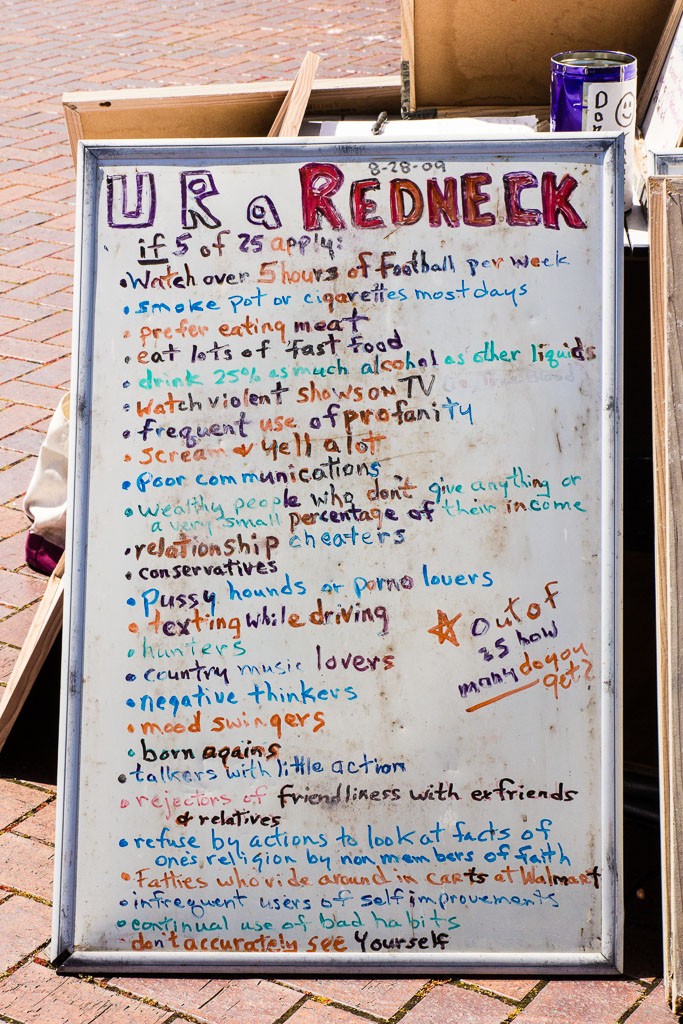 8-28-09
U R a REDNECK
if 5 of 25 apply:
• Watch over 5 hours of football per week
• smoke pot or cigarettes most days
• prefer eating meat
• eat lots of fast food
• drink 25% as much alcohol as other liquids
• Watch violent shows on TV
• frequent use of profanity
• scream & yell a lot
• Poor communications
• Wealthy people who don't give anything or
a very small percentage of their income
• relationship cheaters
• conservatives
• Pussy hounds or porno lovers
• texting while driving
• hunters
• country music lovers
• negative thinkers
• mood swingers
• born agains
• talkers with little action
• rejectors of friendliness with exfriends
& relatives
• refuse by actions to look at facts of
ones religion by non members of faith
• Fatties who ride around in carts at Walmart
• infrequent users of self improvements
• continual use of bad habits
• don't accurately see Yourself
out of
25 how
many do you
get?